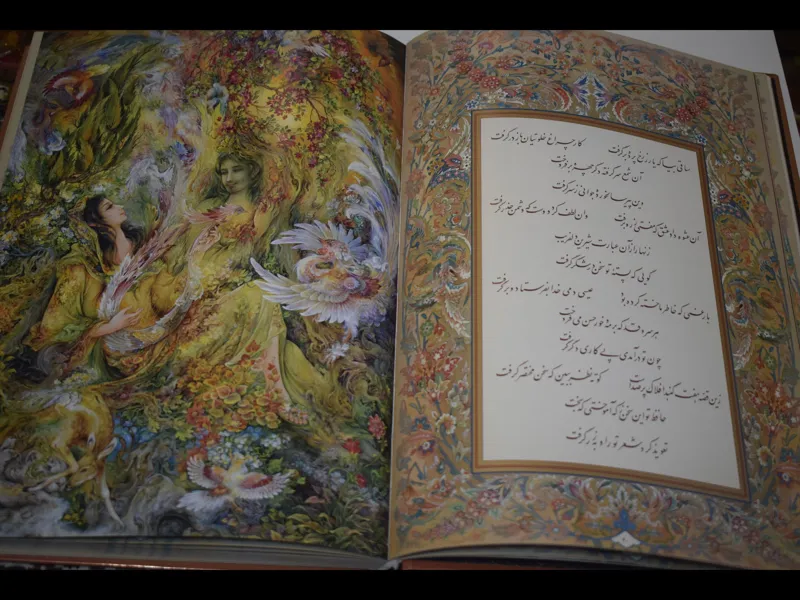 ساقی بیا که یار ز رخ پرده برگرفت کار چراغ خلوتیان باز درگرفت
آن شمع سرگرفته دگر چهره برفروخت
وین پیر سالخورده جوانی ز سر گرفت
آن عشوه داد عشق که مفتی ز ره برفت وان لطف کرد دوست که دشمن حذر گرفت
زنهار از آن عبارت شیرین دلفریب
گویی که پسته تو سخن در شکر گرفت
بار غمی که خاطر ما خسته کرده بود عیسی دمی خدا بفرستاد و برگرفت
هر سرو قد که بر مه و خور حسن می فروخت
چون تو درآمدی پی کاری دگر گرفت
زین قصه هفت گنبد افلاک پر صداست کوته نظر ببین که سخن مختصر گرفت
حافظ تو این سخن ز که آموختی که بخت
تعویذ کرد شعر تو را و به زر گرفت